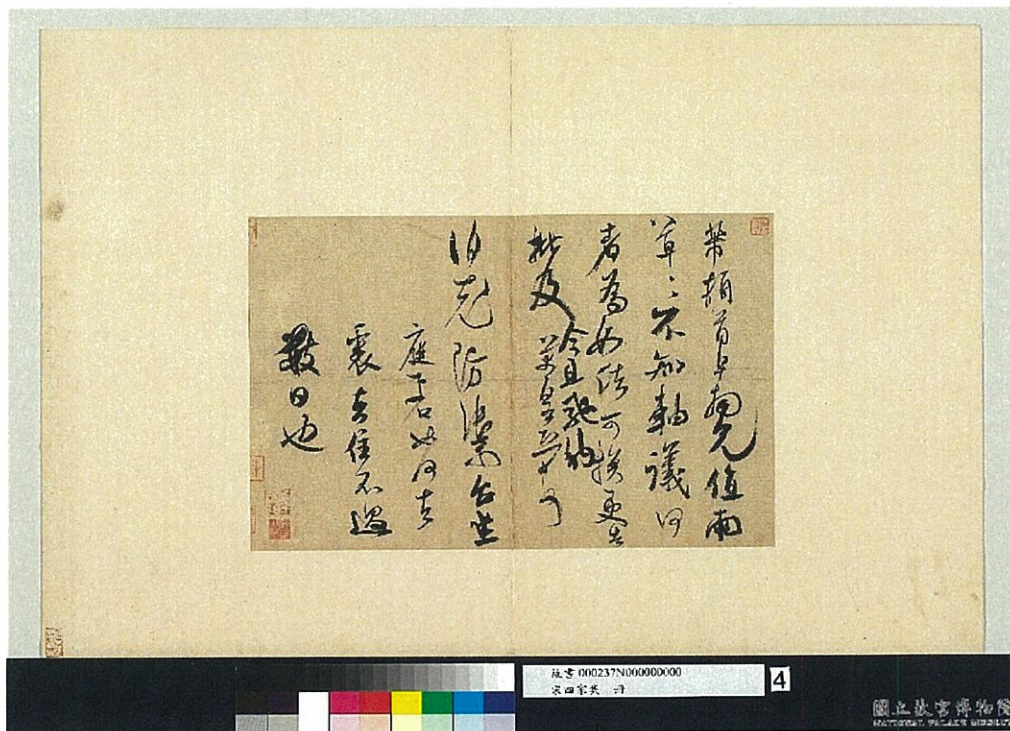 芾頓首早拙兄值雨
草々不知軸議何
者為如信可換更告
批及
今且馳納
芾皇恐
伯充防禦台坐
庭若如何去
襄去住不過
數日也
故畫000237N000000000
宋四家真 冊
4
國立故宮博物院
NATIONAL PALACE MUSEUM